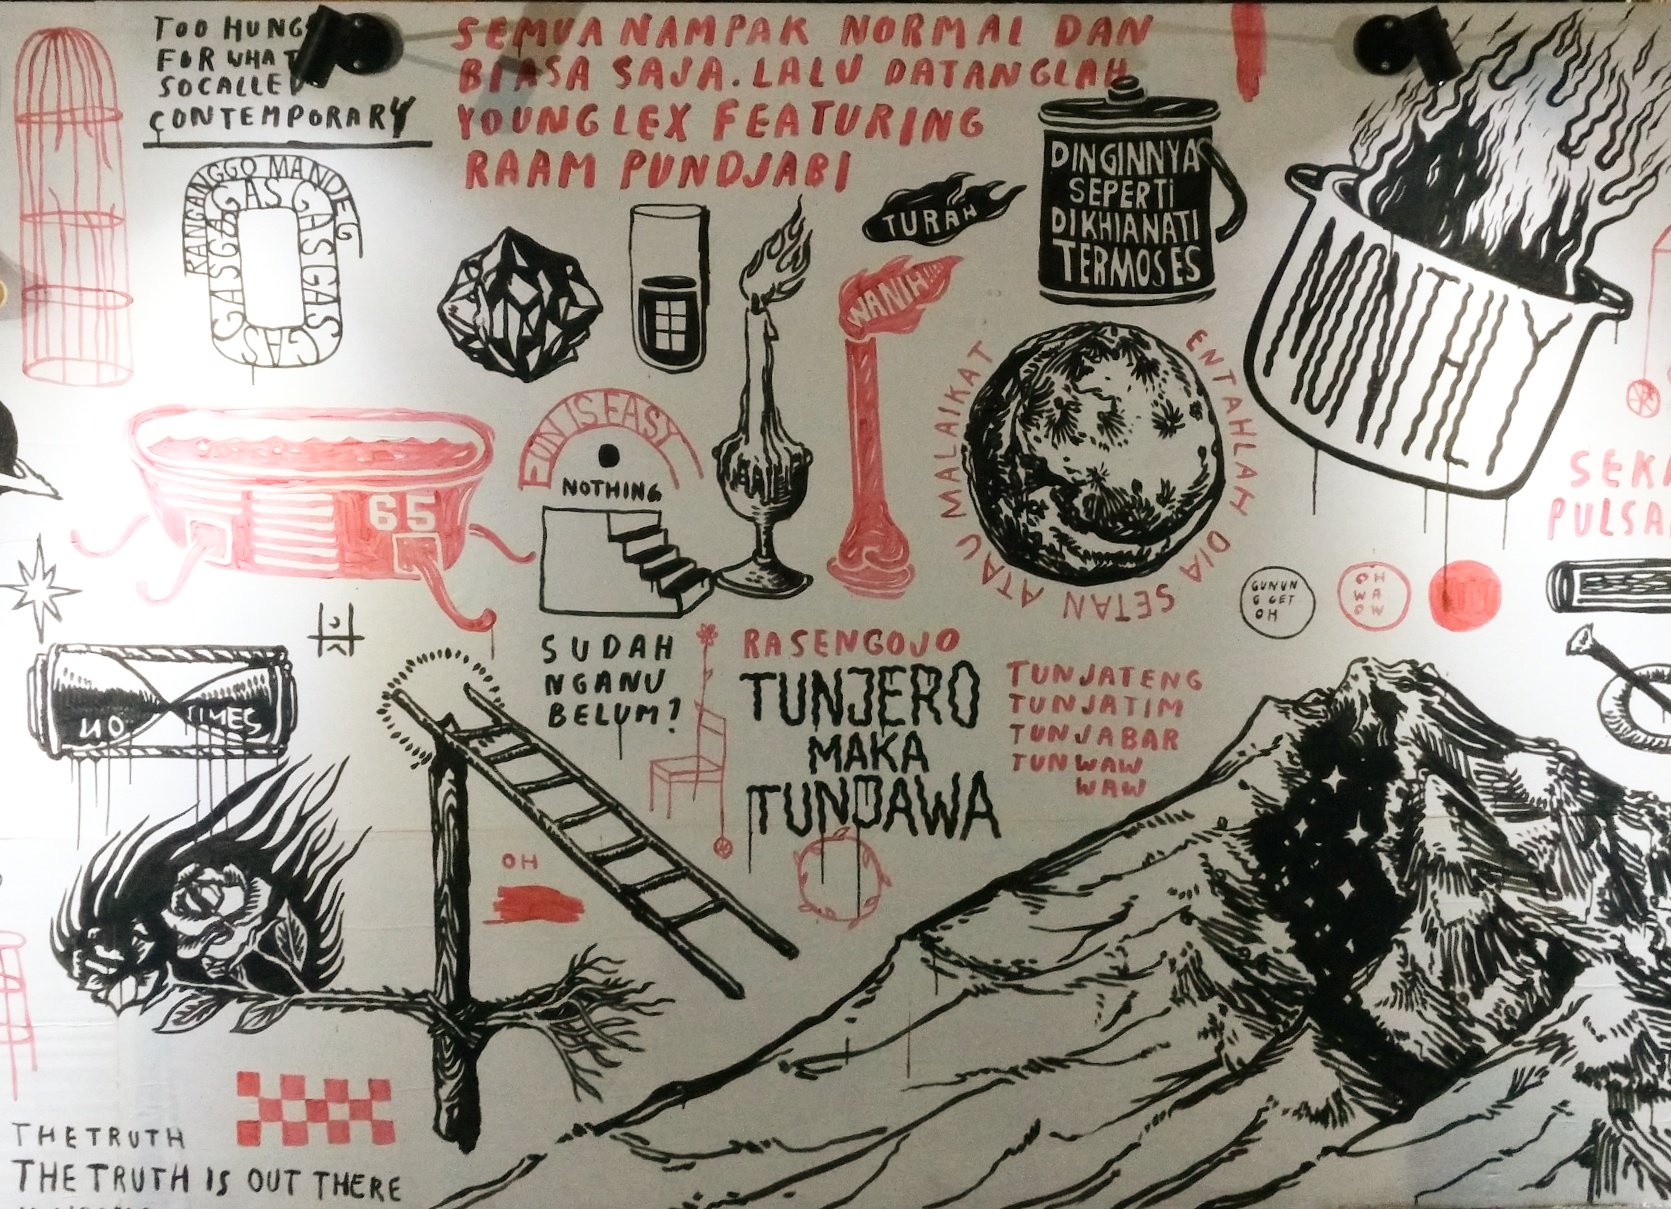 TOO
FOR WHAT
SOCALLED
CONTEMPORARY
SEMUA NAMPAK NORMAL DAN
BIASA SAJA. LALU DATANGLAH
YOUNG LEX FEATURING
RAAM PUNDJABI
RANGANGGO MANDEG
GAS GAS GAS GAS GAS GAS GAS
TURAH
DINGINNYA
SEPERTI
DIKHIANATI
TERMOSES
MONTHLY
WANI!!!
FUN IS EASY
NOTHING
65
ENTAHLAH DIA SETAN ATAU MALAIKAT
GUNUN
G GET
OH
OH
WA
OW
PULSA
NO TIMES
SUDAH
NGANU
BELUM?
RASENGOJO
TUNJERO
MAKA
TUNDAWA
TUNJATENG
TUNJATIM
TUNJABAR
TUNWAW
WAW
OH
THE TRUTH
THE TRUTH IS OUT THERE